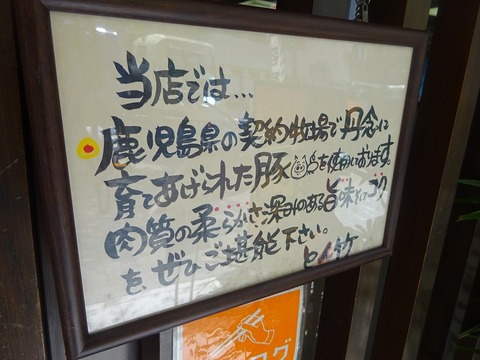 当店では…
鹿児島県の契約牧場で丹念に
育てあげられた豚を使用しております。
肉質の柔らかさ、深みのある旨味そしてコク
を、ぜひご堪能下さい。
グ